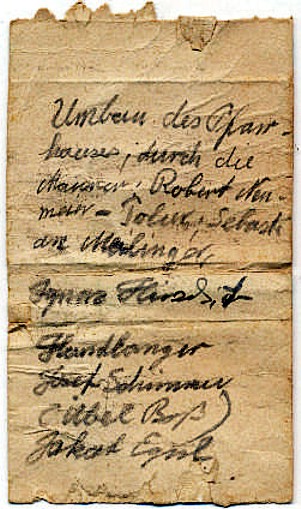 Umbau des Pfarr-
hauses, durch die
Maurer, Robert Neu-
meier - Sebasti
an Meilinger,
Ignaz Hirsch,
Handlanger
Josef Schimmer
Boß)
Jakob